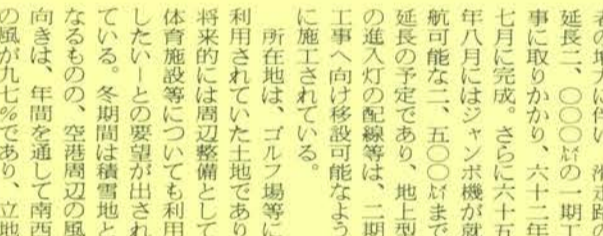 延長二、〇〇〇㍍の一期工
事に取りかかり、六十二年
七月に完成。さらに六十五
年八月にはジャンボ機が就
航可能な二、五〇〇㍍まで
延長の予定であり、地上型
の進入灯の配線等は、二期
工事へ向け移設可能なよう
に施工されている。
所在地は、ゴルフ場等に
利用されていた土地であり
将来的には周辺整備として
体育施設等についても利用
したい―との要望が出され
ている。冬期間は積雪地と
なるものの、空港周辺の風
向きは、年間を通して南西
の風が九七%であり、立地